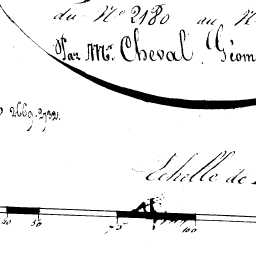 du N° 2180 au N
Par Mr. Cheval Géom
Echelle de
50 100